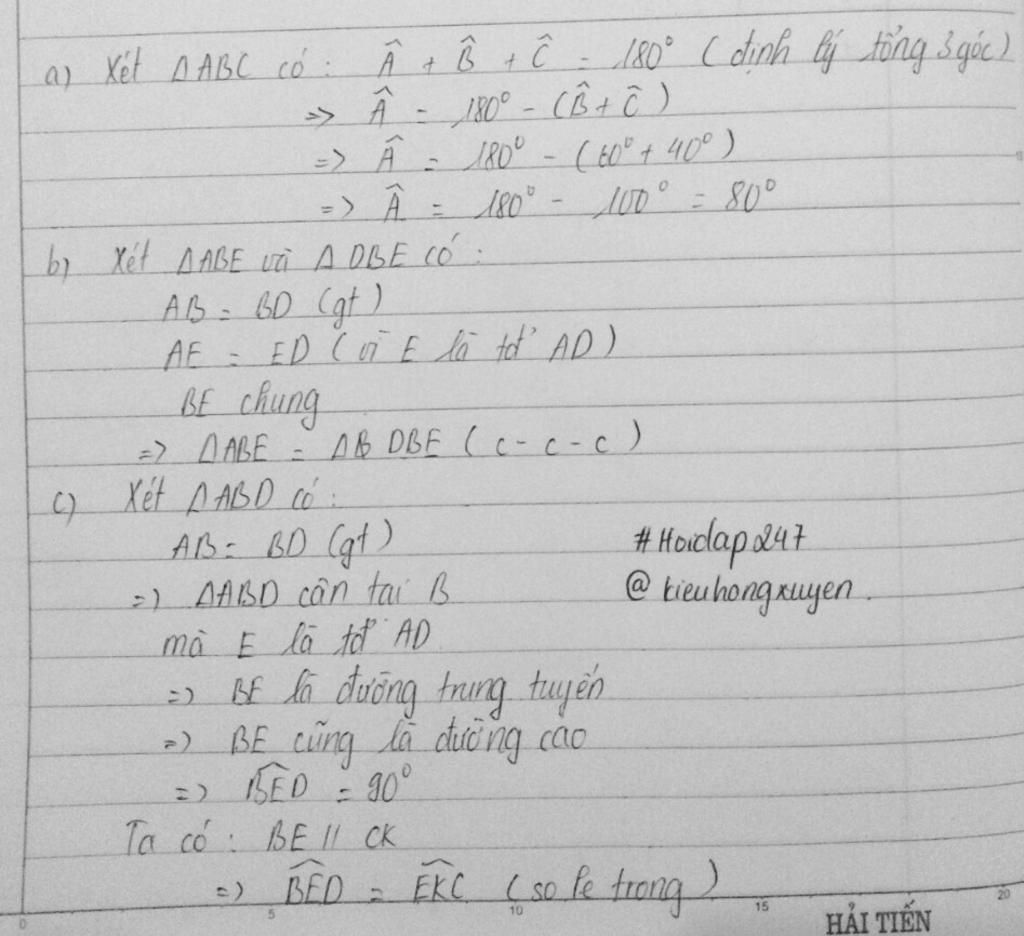 a) Xét ΔABC có : Â + B̂ + Ĉ = 180° ( định lý tổng 3 góc )
=> Â = 180° - ( B̂ + Ĉ )
=> Â = 180° - ( 60° + 40° )
=> Â = 180° - 100° = 80°
b) Xét ΔABE và Δ DBE có :
AB = BD (gt)
AE = ED ( vì E là tđ' AD )
BE chung
=> ΔABE = ΔB DBE ( c - c - c )
c) Xét ΔABD có :
AB = BD (gt)
=> ΔABD cân tại B
mà E là tđ' AD
=> BE là đường trung tuyến
=> BE cũng là đường cao
=> BÊD = 90°
Ta có : BE // CK
=> BÊD = EK̂C ( so le trong )
#Hoidap247
@kieuhongxuyen .
0 5 10 15 20
HẢI TIẾN